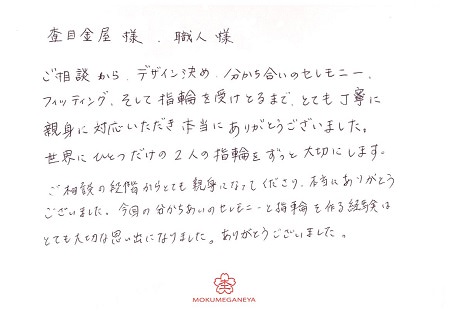 杢目金屋 様 . 職人 様
ご相談から、デザイン決め、分かち合いのセレモニー、
フィッティング、そして指輪を受けとるまで、とても丁寧に
親身に対応いただき本当にありがとうございました。
世界にひとつだけの2人の指輪をずっと大切にします。
ご相談の段階からとても親身になってくださり、本当にありがとう
ございました。今回の分かちあいのセレモニーと指輪を作る経験は
とても大切な思い出になりました。ありがとうございました。
MOKUMEGANEYA